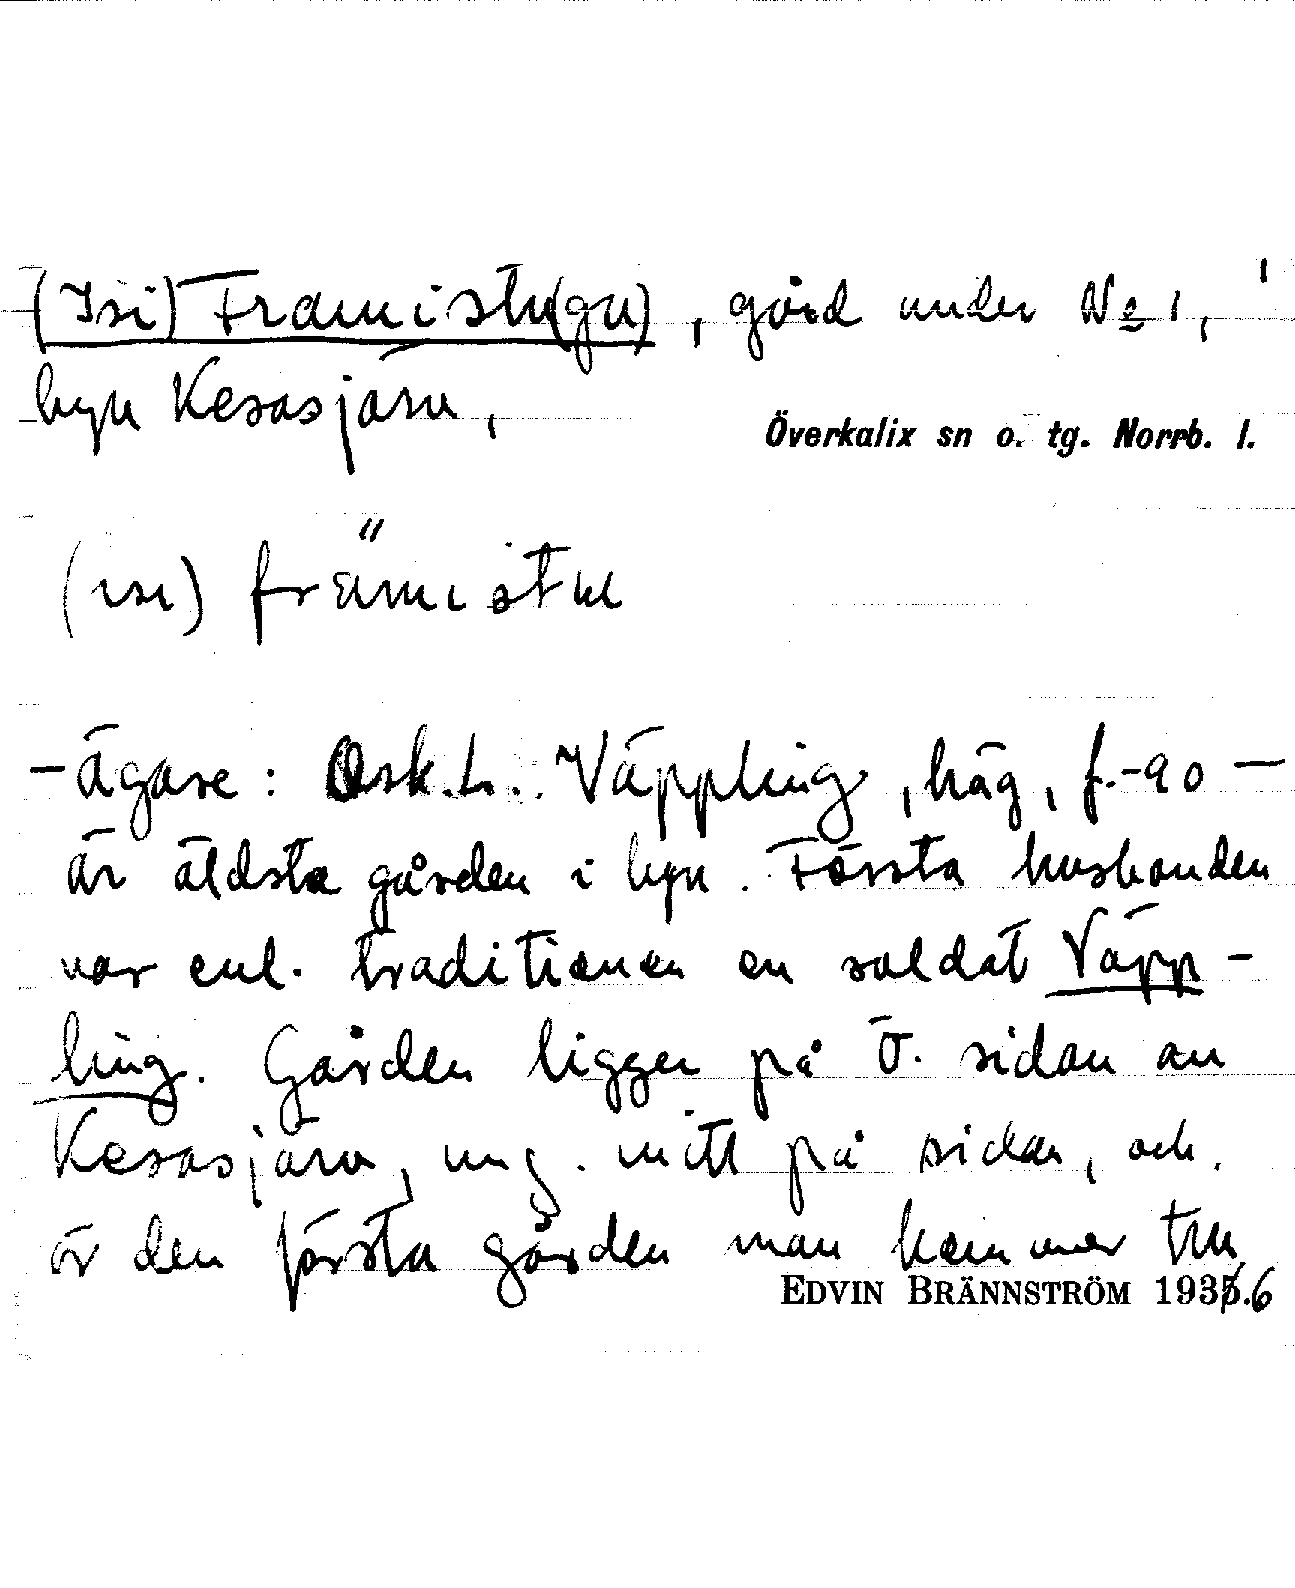 (Isi) Framistu(gu), gård under № 1, 1
byn Kesasjärv,
Överkalix sn o. tg. Norrb. l.
(ɩsɩ) främɩstu
– ägare: Osk. L. Väppling, häg, f. -90 –
är äldsta gården i byn. Första husbonden
var enl. traditionen en soldat Väpp-
ling. Gården ligger på Ö. sidan av
Kesasjärv, ung. mitt på sidan, och
är den första gården man kommer till
EDVIN BRÄNNSTRÖM 1935.6